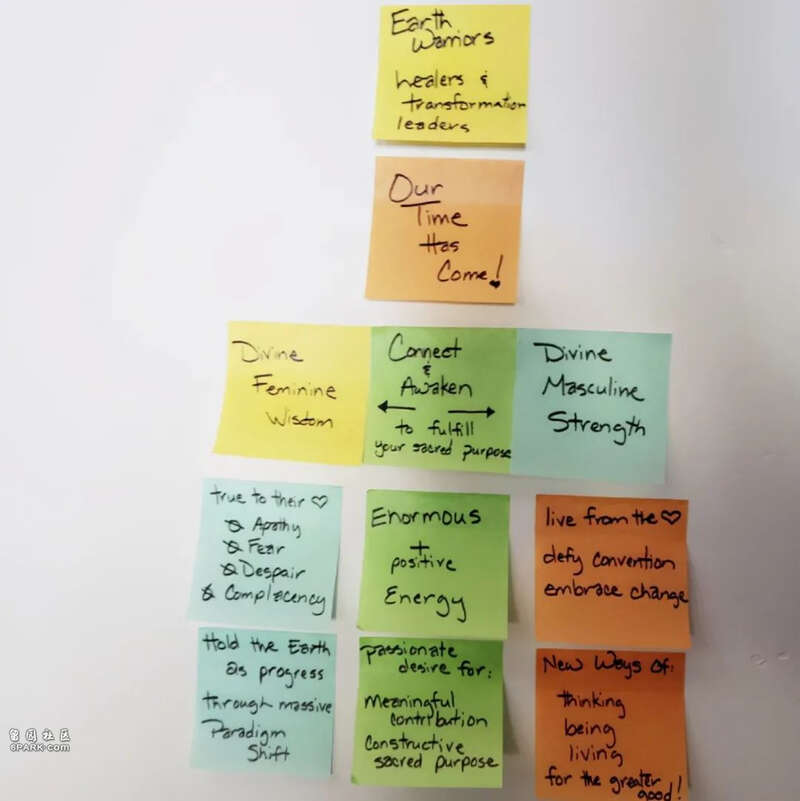 Earth
Warriors
healers &
transformation
leaders
Our
Time
Has
Come!
Divine
Feminine
Wisdom
Connect
&
Awaken
to fulfill
your sacred purpose
Divine
Masculine
Strength
true to their ♡
Apathy
Fear
Despair
Complacency
Enormous
+
positive
Energy
live from the ♡
defy convention
embrace change
Hold the Earth
as progress
through massive
Paradigm
Shift
passionate
desire for:
Meaningful
contribution
Constructive
sacred purpose
New Ways of:
thinking
being
living
for the greater
good!
留园社区
6PARK.com